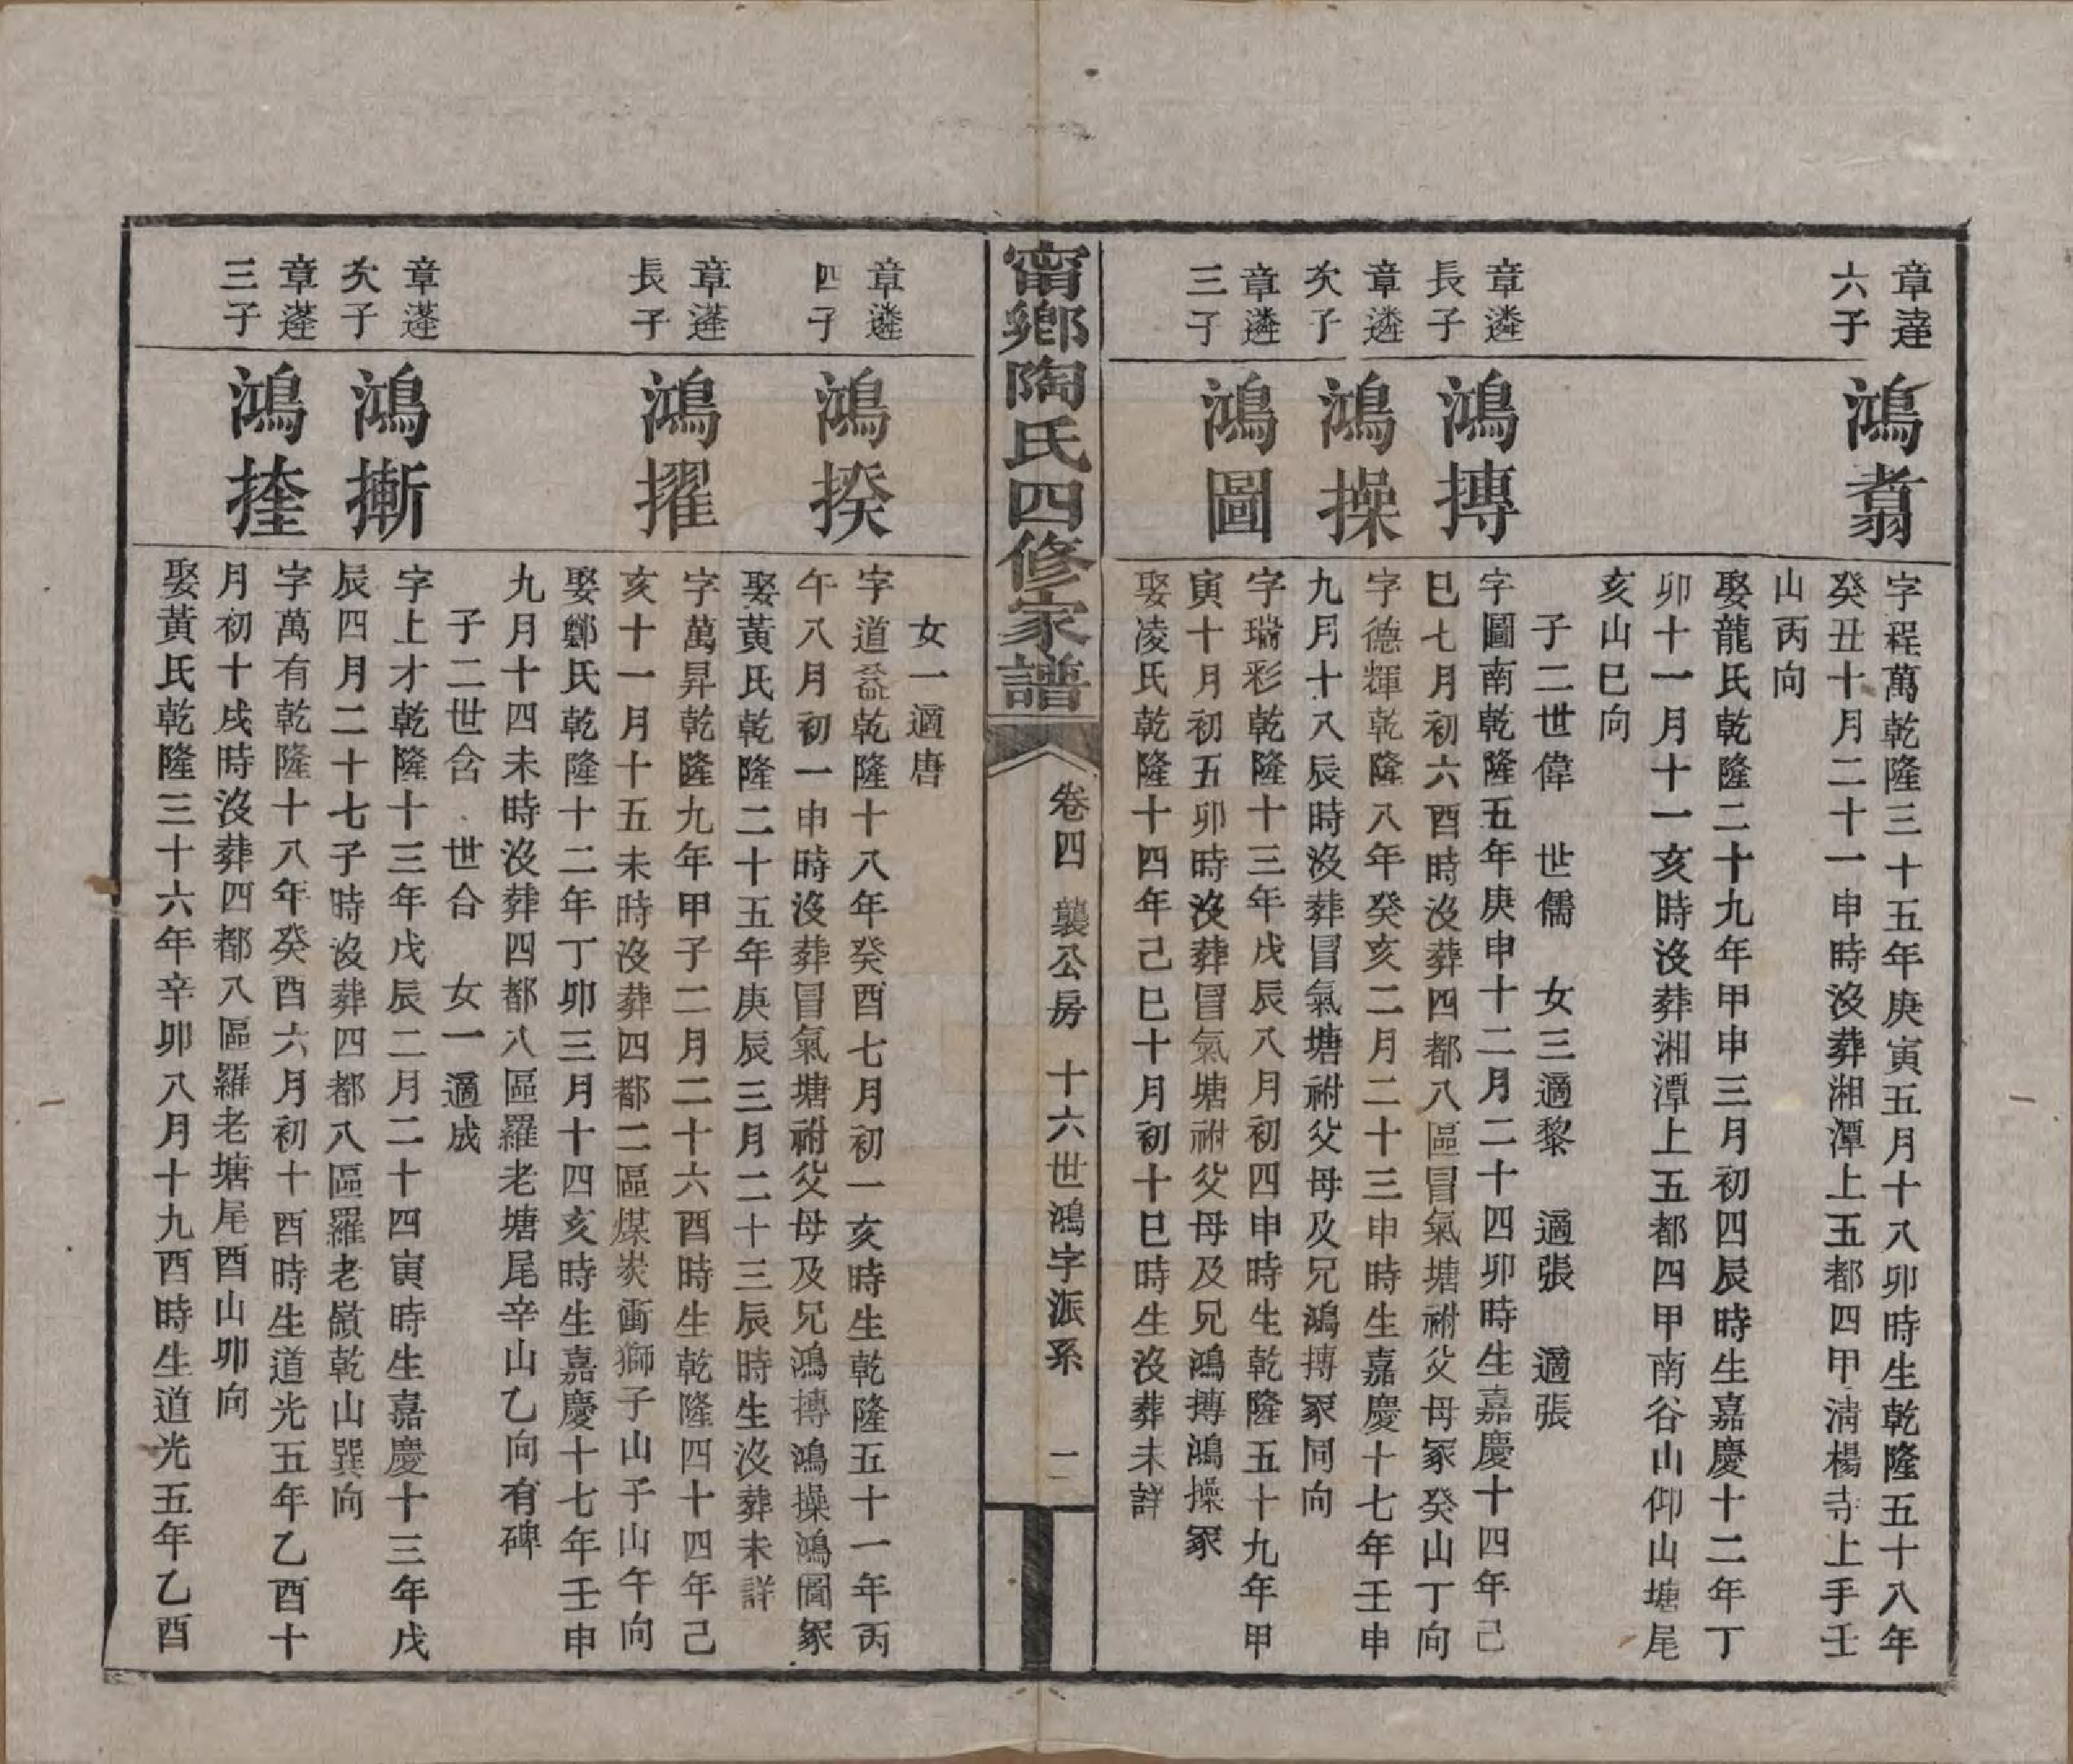 章達
六子
鴻翥
字程萬乾隆三十五年庚寅五月十八卯時生乾隆五十八年
癸丑十月二十一申時沒葬湘潭上五都四甲清楊寺上手壬
山丙向
娶龍氏乾隆二十九年甲申三月初四辰時生嘉慶十二年丁
卯十一月十一亥時沒葬湘潭上五都四甲南谷山仰山塘尾
亥山巳向
子二世偉 世儒 女三適黎 適張 適張
章遴
長子
鴻摶
字圖南乾隆五年庚申十二月二十四卯時生嘉慶十四年己
巳七月初六酉時沒葬四都八區冒氣塘祔父母冢癸山丁向
章遴
次子
鴻操
字德輝乾隆八年癸亥二月二十三申時生嘉慶十七年壬申
九月十八辰時沒葬冒氣塘祔父母及兄鴻摶冢同向
章遴
三子
鴻圖
字瑞彩乾隆十三年戊辰八月初四申時生乾隆五十九年甲
寅十月初五卯時沒葬冒氣塘祔父母及兄鴻摶鴻操冢
娶凌氏乾隆十四年己巳十月初十巳時生沒葬未詳
甯鄉陶氏四修家譜
卷四 襲公房 十六世鴻字派系 二
女一適唐
章遴
四子
鴻揆
字道益乾隆十八年癸酉七月初一亥時生乾隆五十一年丙
午八月初一申時沒葬冒氣塘祔父母及兄鴻摶鴻操鴻圖冢
娶黃氏乾隆二十五年庚辰三月二十三辰時生沒葬未詳
章蓬
長子
鴻擢
字萬昇乾隆九年甲子二月二十六酉時生乾隆四十四年己
亥十一月十五未時沒葬四都二區煤炭衝獅子山子山午向
娶鄭氏乾隆十二年丁卯三月十四亥時生嘉慶十七年壬申
九月十四未時沒葬四都八區羅老塘尾辛山乙向有碑
子二世含 世合 女一適成
章蓬
次子
鴻摲
字上才乾隆十三年戊辰二月二十四寅時生嘉慶十三年戊
辰四月二十七子時沒葬四都八區羅老嶺乾山巽向
章蓬
三子
鴻摓
字萬有乾隆十八年癸酉六月初十酉時生道光五年乙酉十
月初十戌時沒葬四都八區羅老塘尾酉山卯向
娶黃氏乾隆三十六年辛卯八月十九酉時生道光五年乙酉